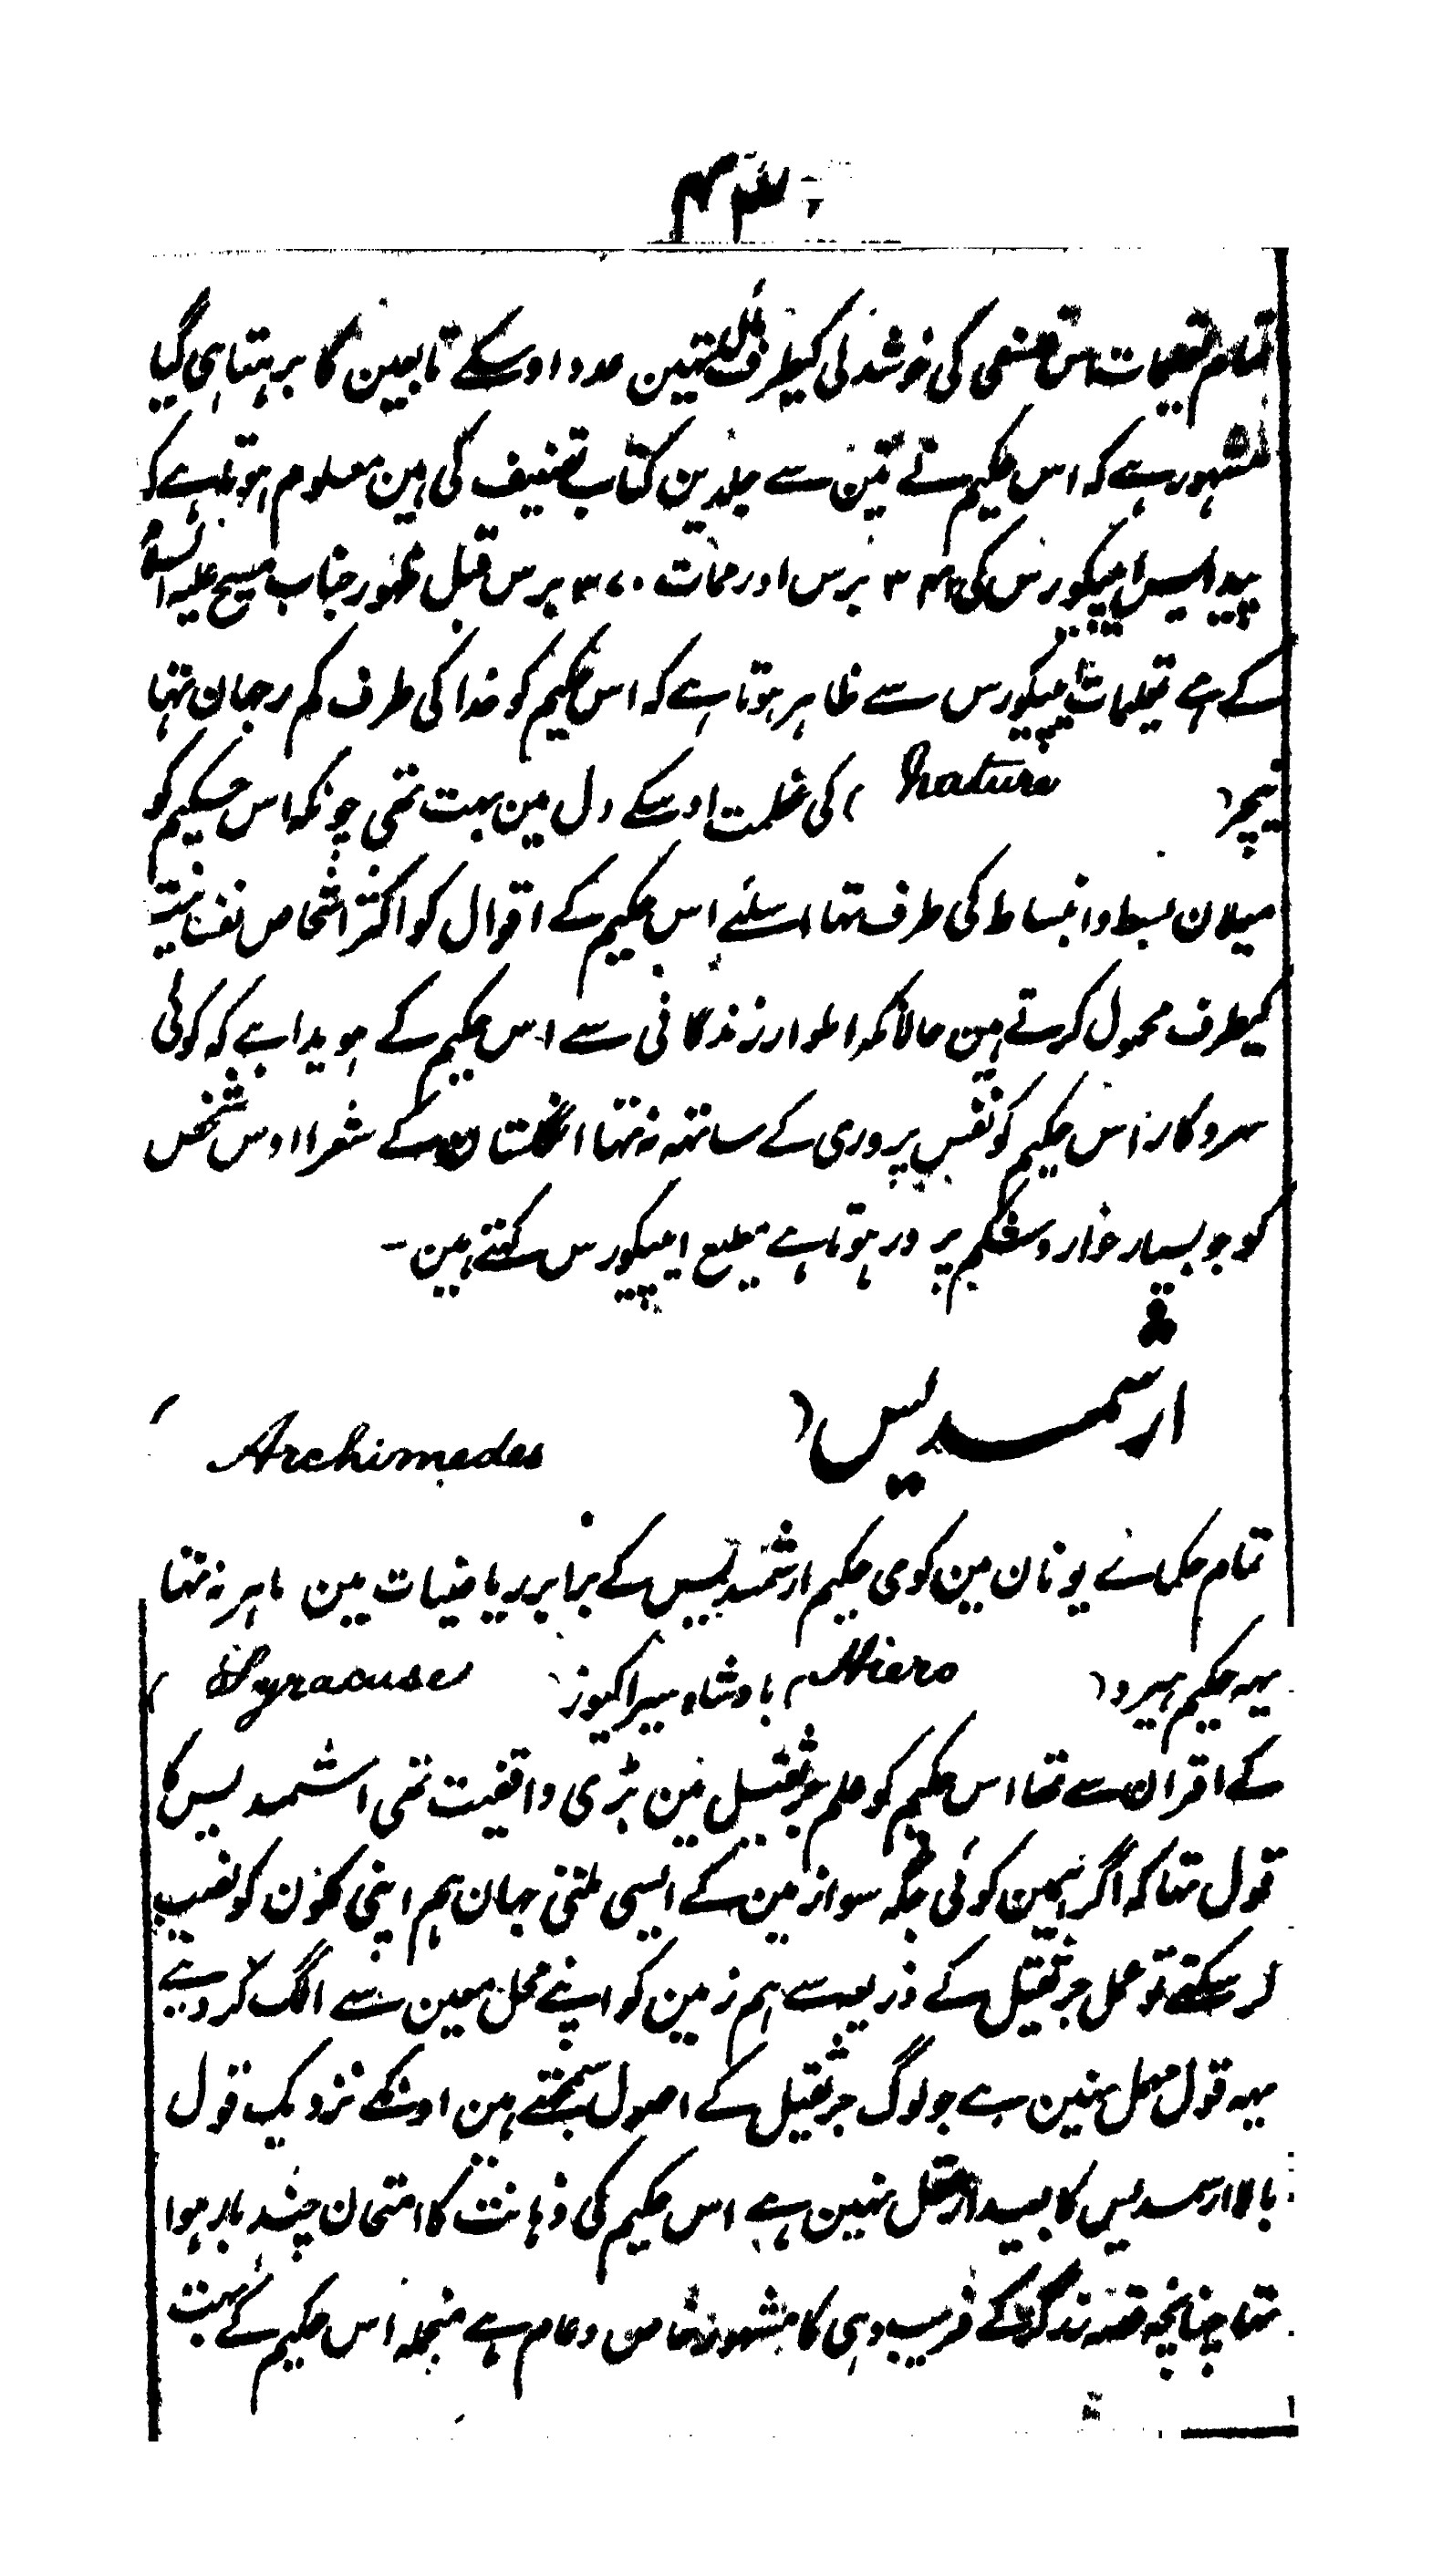 تمام تعلیمات اس فلسفی کی خوشدلی کیطرف مائل تہین عدد اوسکے تابعین کا بڑہتا ہی گیا
مشہور ہے کہ اس حکیم نے تین سے جلدین کتاب تصنیف کی ہین معلوم ہوتا ہے کہ
پیدایش اپیکورس کی برس اور ممات ۳۷۰ برس قبل ظہور جناب مسیح علیہ السلام
کے ہے تعلیمات اپیکورس سے ظاہر ہوتا ہے کہ اس حکیم کو خدا کی طرف کم رجحان تہا
نیچر ( Nature ) کی عظمت اوسکے دل مین بہت تہی چونکہ اس حکیم کو
میلان بسط و انبساط کی طرف تہا اسلئے اس حکیم کے اقوال کو اکثر اشخاص نفسانیت
کیطرف محمول کرتے ہین حالانکہ اطوار زندگانی سے اس حکیم کے ہویدا ہے کہ کوئی
سروکار اس حکیم کو نفس پروری کے ساتہہ نہ تہا انگلستان کے شعرا اوس شخص
کو جو بسیار خوار و شکم پرور ہوتا ہے مطیع اپیکورس کہتے ہین -
ارشمیدیس ( Archimedes )
تمام حکمائے یونان مین کوی حکیم ارشمیدیس کے برابر ریاضیات مین ماہر نہ تہا
یہہ حکیم ہیرو ( Hiero ) بادشاہ سیراکیوز ( Syracuse )
کے اقران سے تہا اس حکیم کو علم جر ثقیل مین بڑی واقفیت تہی اشمیدیس کا
قول تہا کہ اگر ہمین کوئی جگہ سوا زمین کے ایسی ملتی جہان ہم اپنی کلون کو نصب
کر سکتے تو عمل جر ثقیل کے ذریعہ سے ہم زمین کو اپنے محل معین سے الگ کر دیتے
یہہ قول مہمل نہین ہے جو لوگ جر ثقیل کے اصول سمجہتے ہین اونکے نزدیک قول
بالا ارشمیدیس کا بعید از عقل نہین ہے اس حکیم کی ذہانت کا امتحان چند بار ہوا
تہا چنانچہ قصہ زرگر کے فریب دہی کا مشہور خاص و عام ہے منجملہ اس حکیم کے بہت